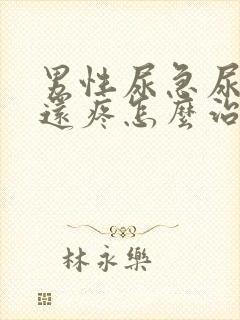 男性尿急尿
還疼怎麼治
林永樂